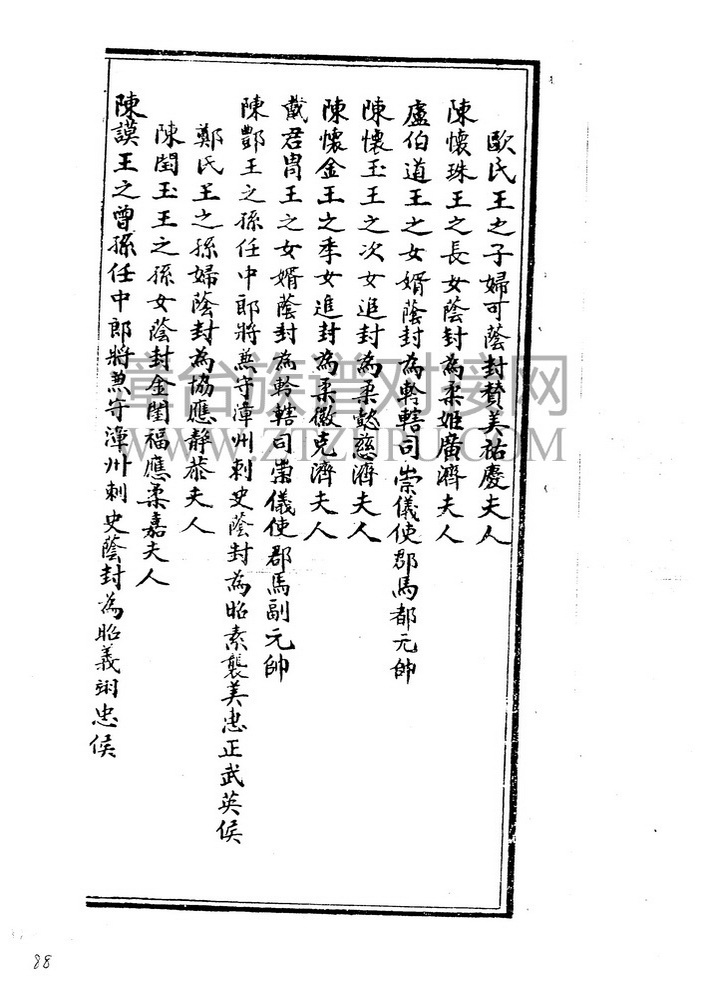 歐氏王之子婦可蔭封賛美祐慶夫人
陳懷珠王之長女蔭封為柔姬廣濟夫人
盧伯道王之女婿蔭封為軨轄司崇儀使郡馬都元帥
陳懷玉王之次女追封為柔懿慈濟夫人
陳懷金王之季女追封為柔徽克濟夫人
戴君胄王之女婿蔭封為軨轄司崇儀使郡馬副元帥
陳酆王之孫任中郎將兼守漳州刺史蔭封為昭素襲美忠正武英侯
鄭氏王之孫婦蔭封為協應靜恭夫人
陳閨玉王之孫女蔭封金閨福應柔嘉夫人
陳謨王之曾孫任中郎將兼守漳州刺史蔭封為昭義翊忠侯
臺台族谱对接网
WWW.ZTZUPU.COM
88